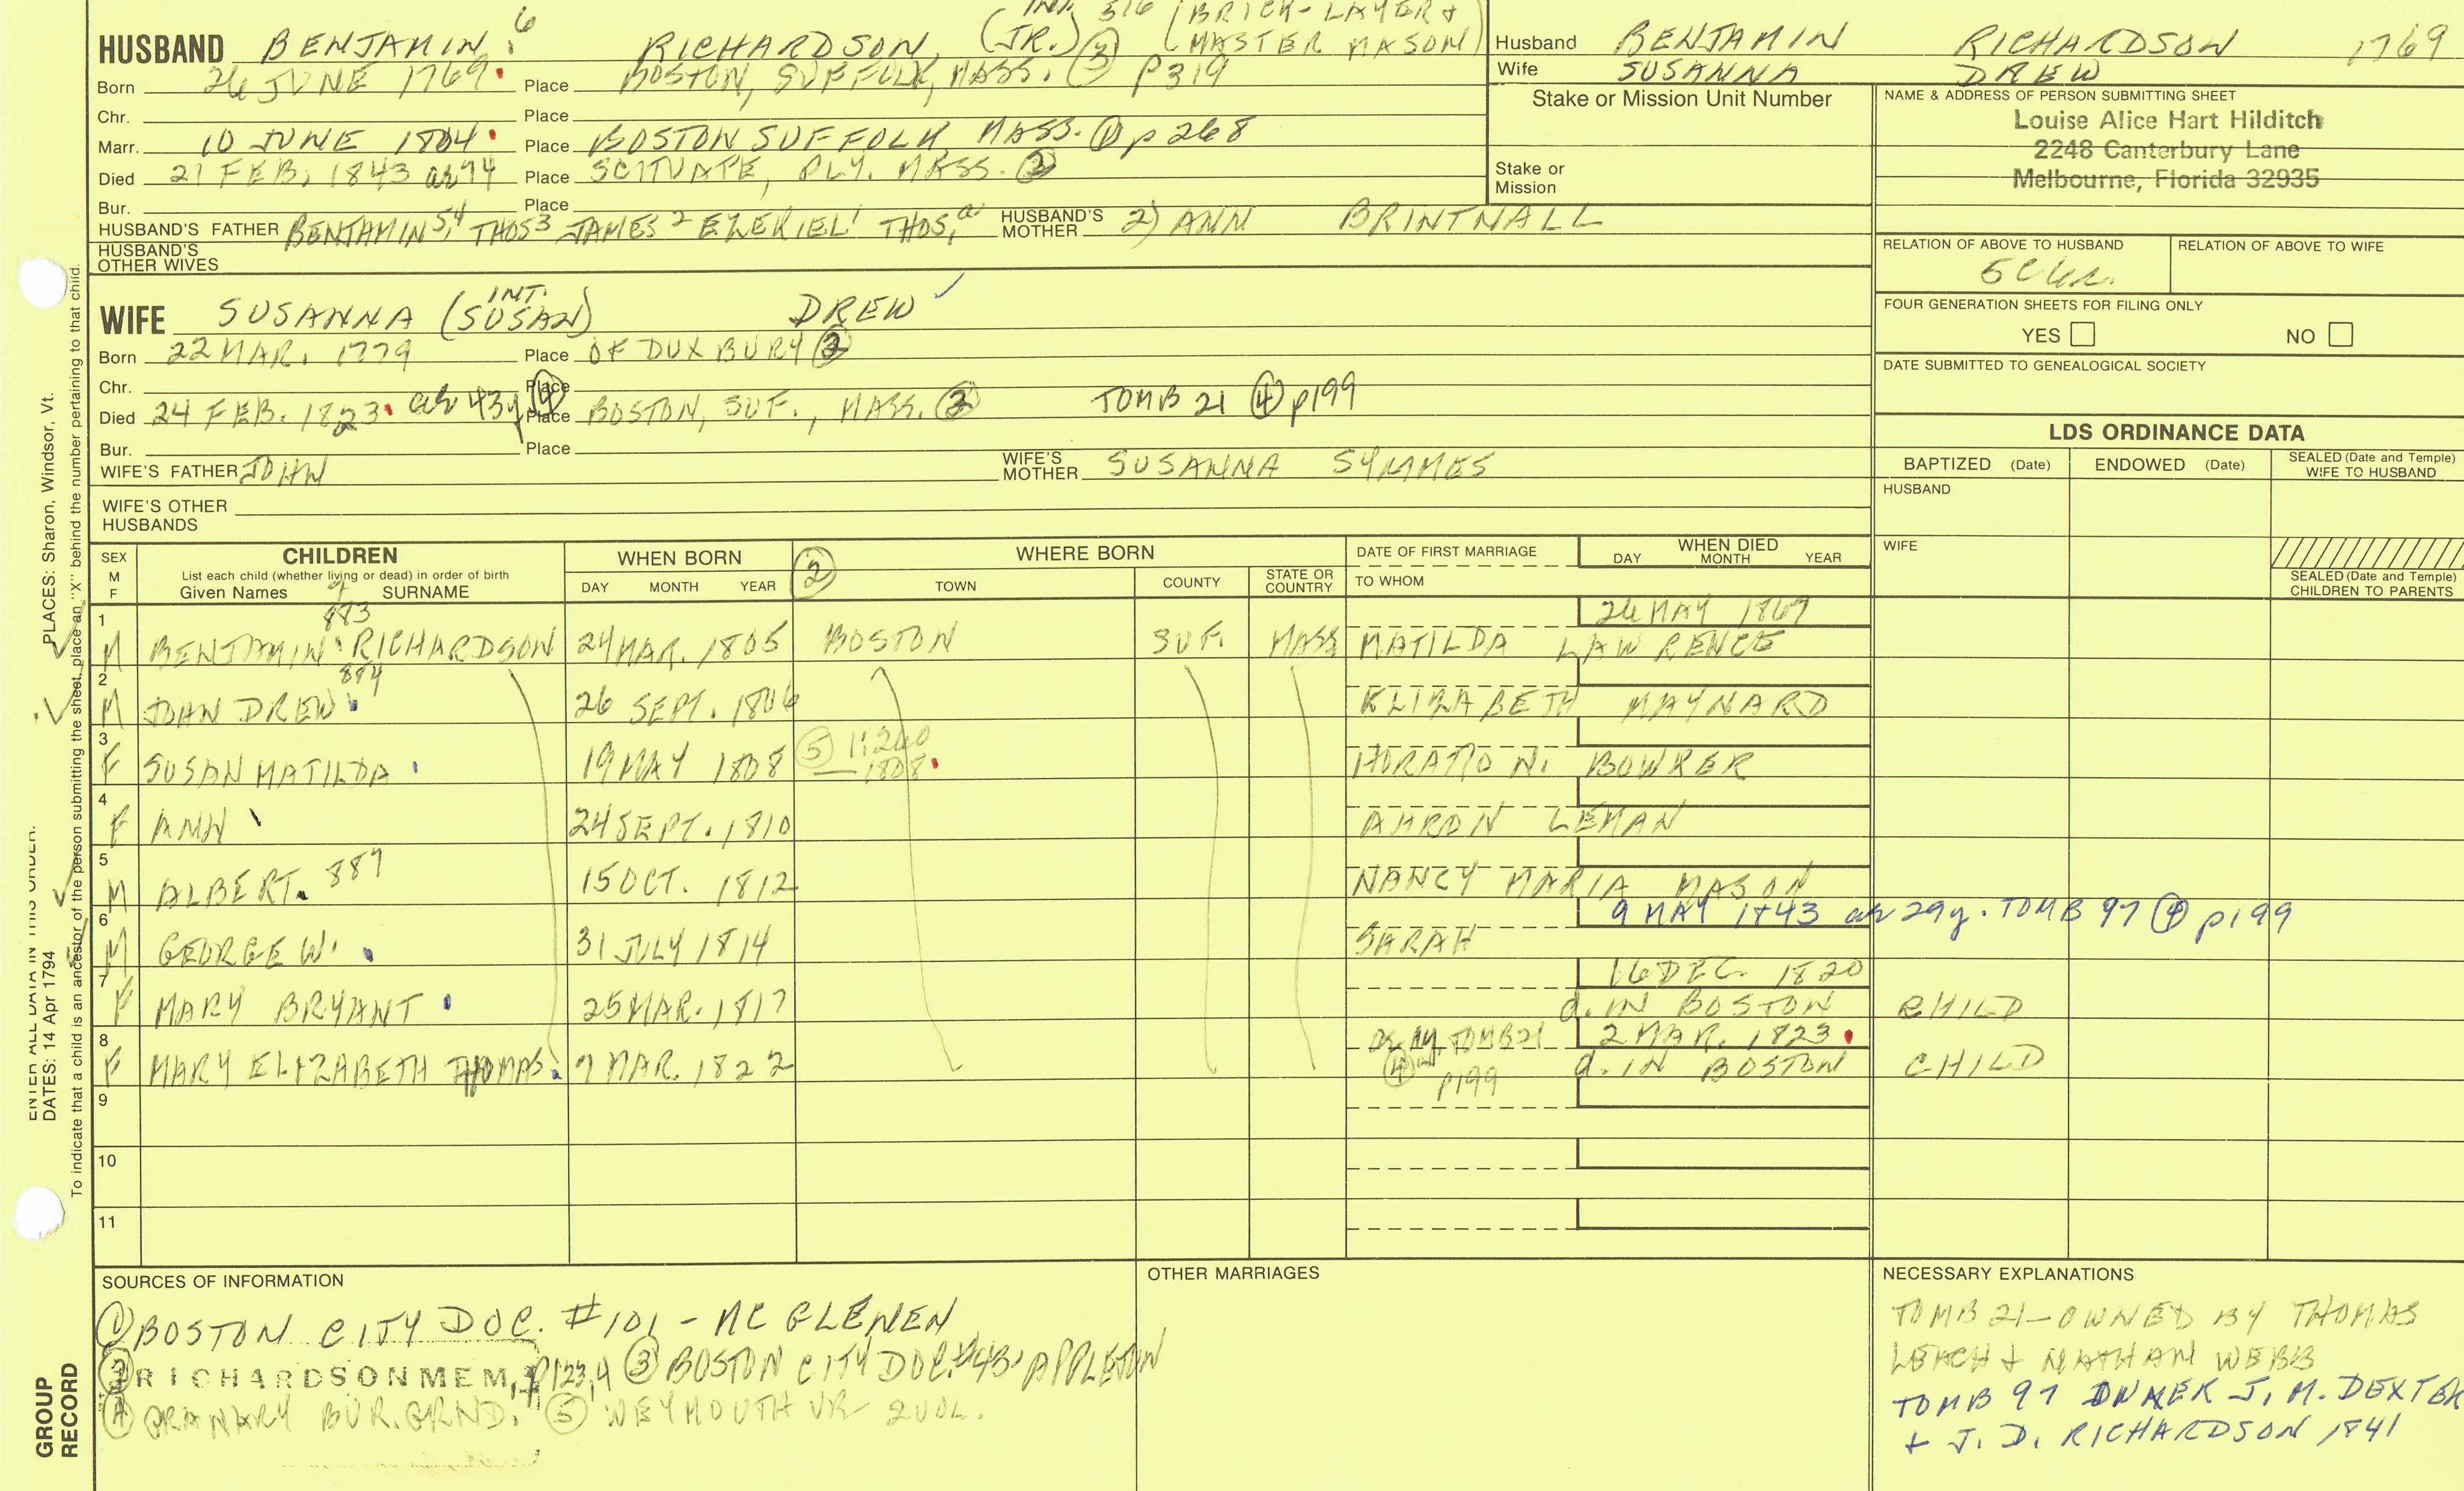 (BRICK-LAYER +
HUSBAND BENJAMIN 6 RICHARDSON, (JR.) 3 MASTER MASON)
Born 26 JUNE 1769. Place BOSTON, SUFFOLK, MASS. 3 p319
Chr. Place
Marr. 10 JUNE 1804. Place BOSTON SUFFOLK MASS. 1 p 268
Died 21 FEB. 1843 ae 74 Place SCITUATE, PLY. MASS. 2
Bur. Place
HUSBAND'S FATHER BENJAMIN 5, 4 THOS 3 JAMES 2 EZEKIEL 1 THOS, a HUSBAND'S MOTHER 2) ANN BRINTNALL
HUSBAND'S OTHER WIVES
Husband BENJAMIN RICHARDSON 1769
Wife SUSANNA DREW
Stake or Mission Unit Number
Stake or Mission
NAME & ADDRESS OF PERSON SUBMITTING SHEET
Louise Alice Hart Hilditch
2248 Canterbury Lane
Melbourne, Florida 32935
RELATION OF ABOVE TO HUSBAND RELATION OF ABOVE TO WIFE
FOUR GENERATION SHEETS FOR FILING ONLY
YES NO
DATE SUBMITTED TO GENEALOGICAL SOCIETY
INT.
WIFE SUSANNA (SUSAN) DREW
Born 22 MAR. 1779 Place OF DUXBURY 2
Chr. Place
Died 24 FEB. 1823. ae 43y 4 Place BOSTON, SUF., MASS. 2 TOMB 21 4 p199
Bur. Place
WIFE'S FATHER JOHN WIFE'S MOTHER SUSANNA SYMMES
WIFE'S OTHER HUSBANDS
LDS ORDINANCE DATA
BAPTIZED (Date) ENDOWED (Date) SEALED (Date and Temple) WIFE TO HUSBAND
HUSBAND
WIFE
SEALED (Date and Temple) CHILDREN TO PARENTS
SEX M F CHILDREN WHEN BORN 2 WHERE BORN DATE OF FIRST MARRIAGE WHEN DIED
List each child (whether living or dead) in order of birth DAY MONTH YEAR
Given Names 7 SURNAME DAY MONTH YEAR TOWN COUNTY STATE OR COUNTRY TO WHOM
1 883 26 MAY 1867
M BENJAMIN. RICHARDSON 24 MAR. 1805 BOSTON SUF. MASS MATILDA LAWRENCE
2 884
M JOHN DREW 26 SEPT. 1806 ELIZABETH MAYNARD
3 5 11:260
F SUSAN MATILDA 19 MAY 1808 — 1808. HORATIO N. BOWKER
4
F ANN 24 SEPT. 1810 AARON LEMAN
5
M ALBERT. 887 15 OCT. 1812 NANCY MARIA MASON
6 9 MAY 1843 ae 29y. TOMB 97 4 p199
M GEORGE W. 31 JULY 1814 SARAH
7 16 DEC. 1820
F MARY BRYANT 25 MAR. 1817 d. IN BOSTON CHILD
8 TOMB 21 2 MAR. 1823.
F MARY ELIZABETH THOMAS. 7 MAR. 1822 4 p199 d. IN BOSTON CHILD
9
10
11
SOURCES OF INFORMATION
1 BOSTON CITY DOC. #101 - MC GLENEN
2 RICHARDSON MEM, p123,4 3 BOSTON CITY DOC. #43, APPLETON
4 GRANARY BUR. GRND. 5 WEYMOUTH VR 2 VOL.
OTHER MARRIAGES
NECESSARY EXPLANATIONS
TOMB 21—OWNED BY THOMAS
LEACH + NATHAN WEBB
TOMB 97 OWNER J. M. DEXTER
+ J. D. RICHARDSON 1841
ENTER ALL DATA IN THIS ORDER:
DATES: 14 Apr 1794 PLACES: Sharon, Windsor, Vt.
To indicate that a child is an ancestor of the person submitting the sheet, place an "X" behind the number pertaining to that child.
GROUP
RECORD